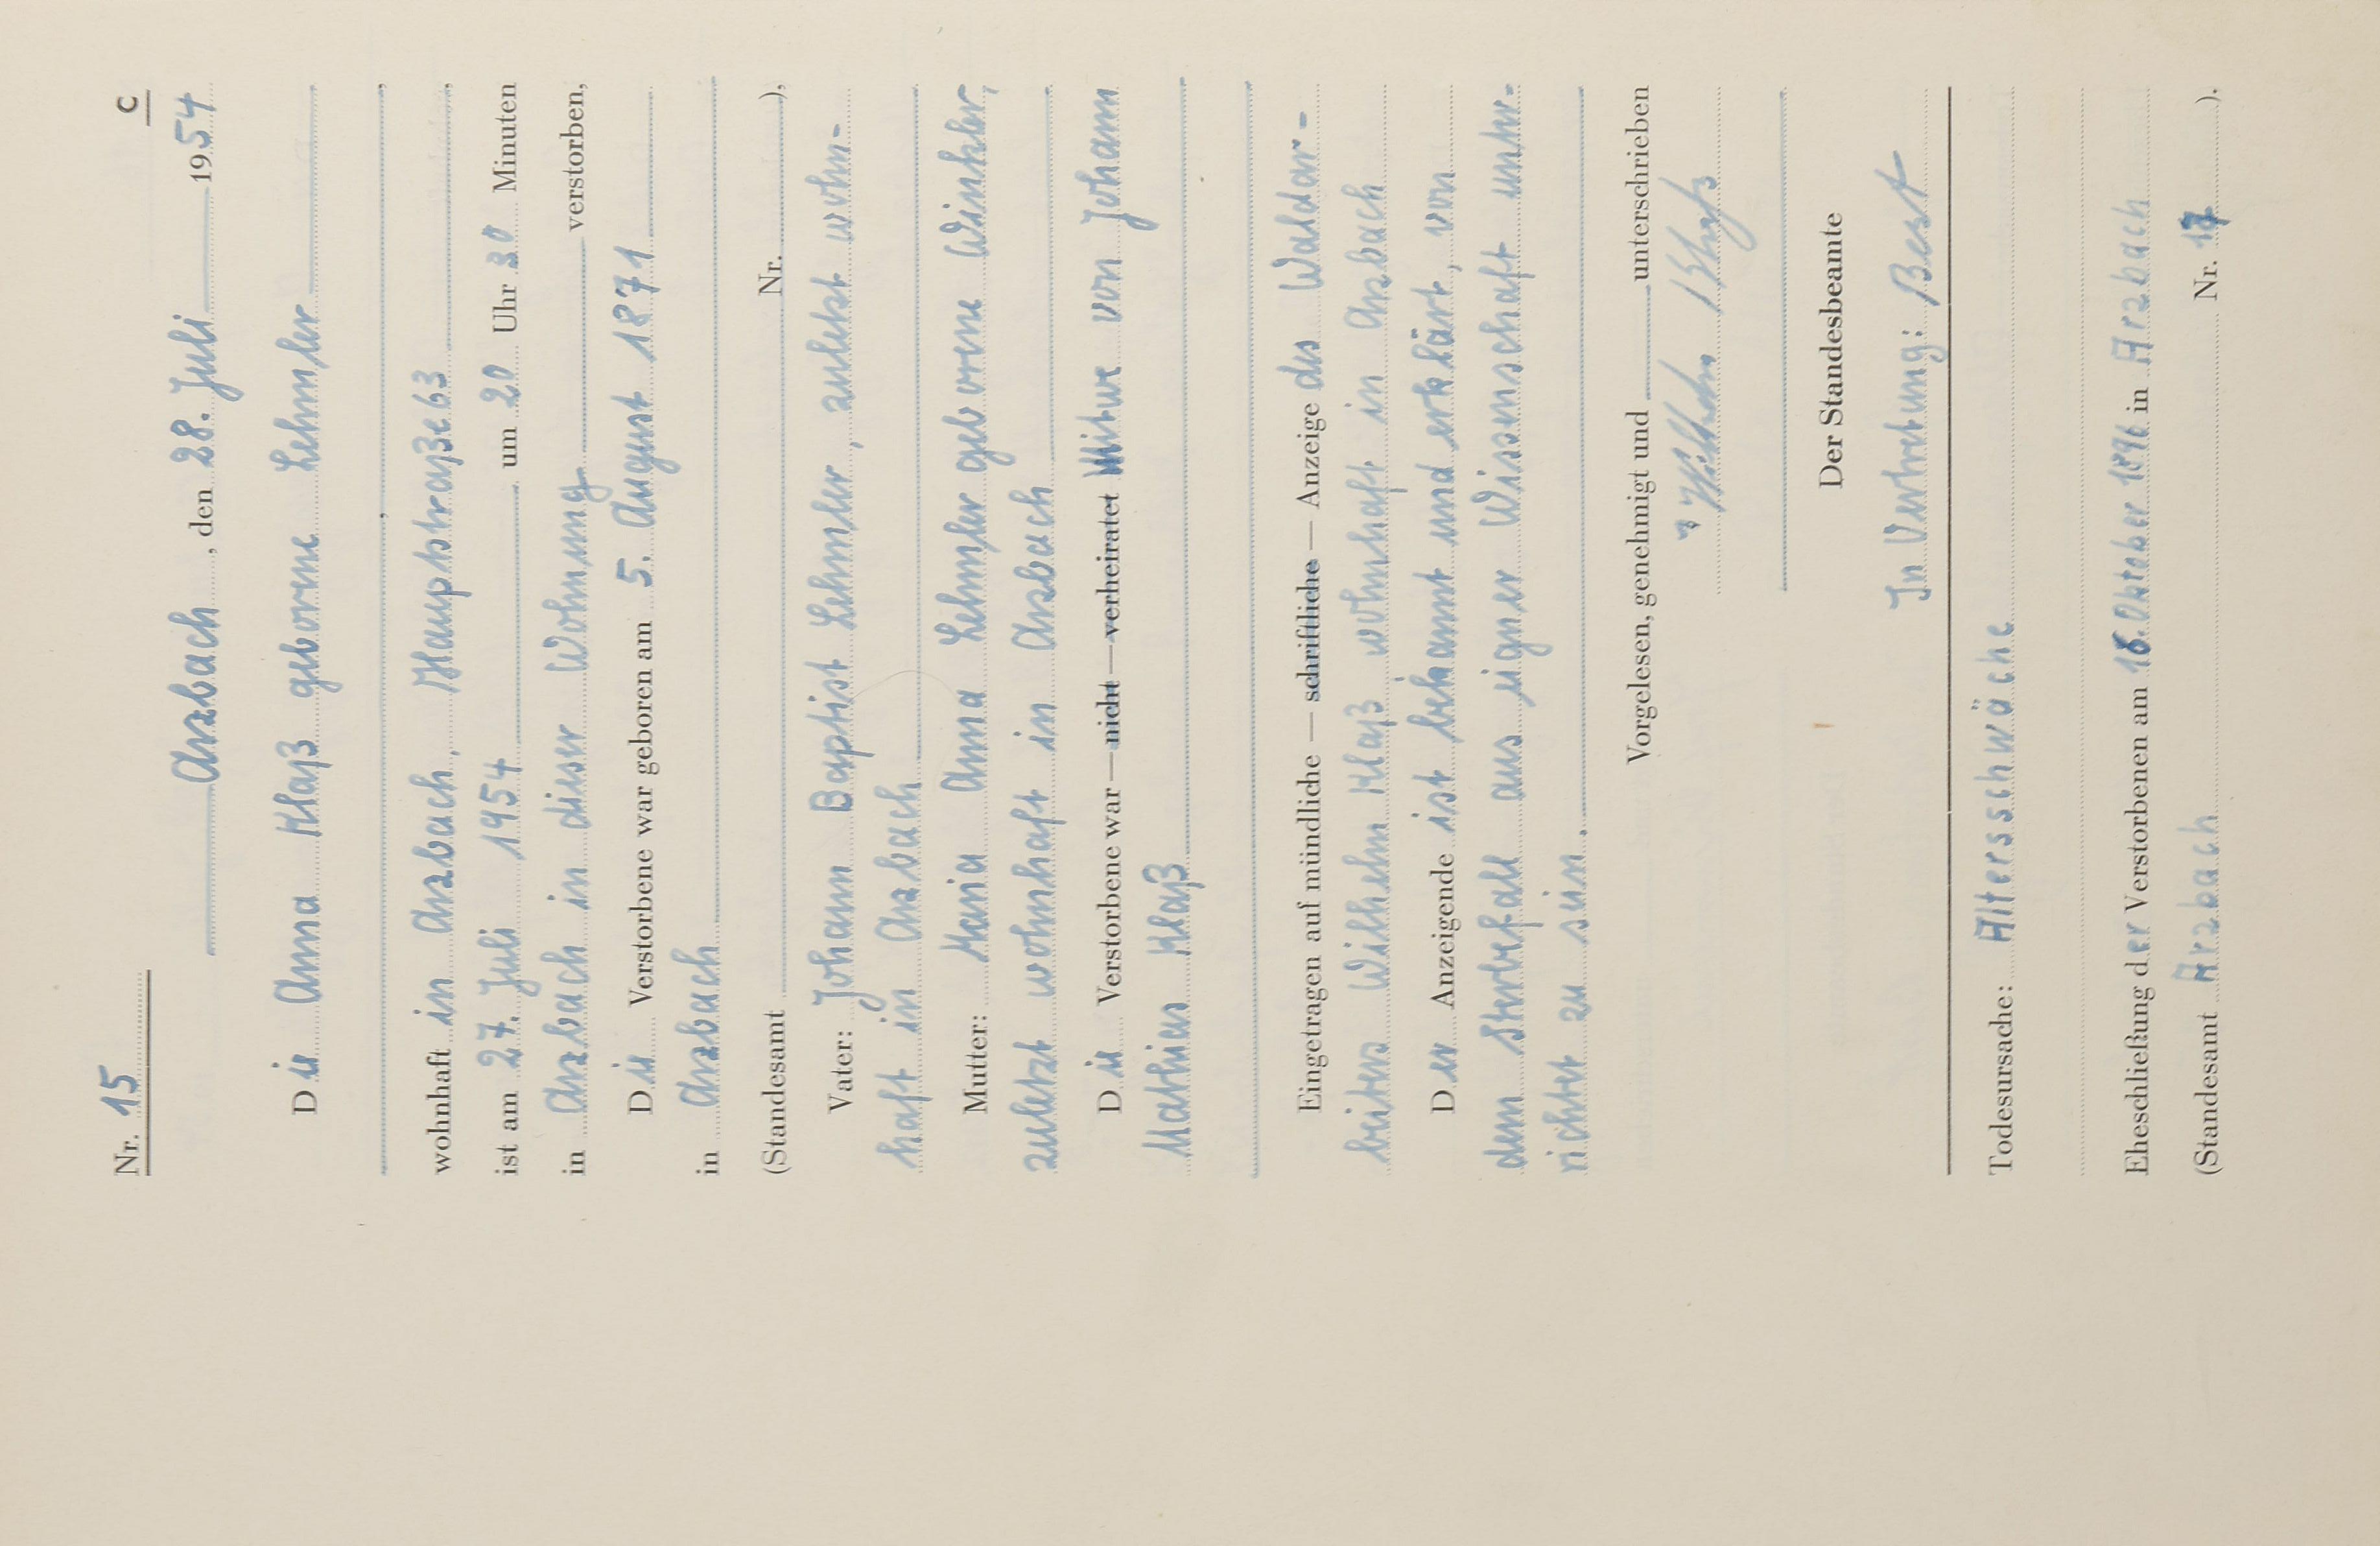 Nr. 15 C
Arzbach, den 28. Juli 1954
Die Anna Klaß geborene Lehmler
wohnhaft in Arzbach, Hauptstraße 63,
ist am 27. Juli 1954 um 20 Uhr 30 Minuten
in Arzbach in dieser Wohnung verstorben,
Die Verstorbene war geboren am 5. August 1871
in Arzbach
(Standesamt Nr. ),
Vater: Johann Baptist Lehmler, zuletzt wohn-
haft in Arzbach
Mutter: Maria Anna Lehmler geborene Winkler,
zuletzt wohnhaft in Arzbach
Die Verstorbene war — nicht — verheiratet Witwe von Johann
Mathias Klaß
Eingetragen auf mündliche — schriftliche — Anzeige des Waldar-
beiters Wilhelm Klaß wohnhaft in Arzbach
Der Anzeigende ist bekannt und erklärt, von
dem Sterbefall aus eigner Wissenschaft unter-
richtet zu sein.
Vorgelesen, genehmigt und unterschrieben
Wilhelm Klaß
Der Standesbeamte
In Vertretung: Best
Todesursache: Altersschwäche
Eheschließung der Verstorbenen am 16. Oktober 1896 in Arzbach
(Standesamt Arzbach Nr. 17 ).